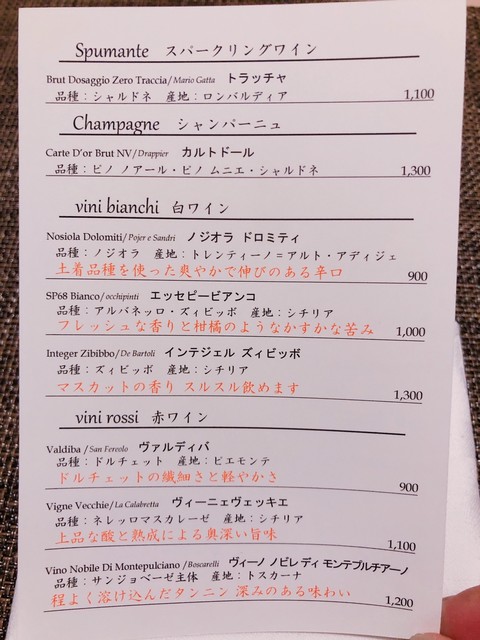 Spumante スパークリングワイン
Brut Dosaggio Zero Traccia/Mario Gatta トラッチャ
品種：シャルドネ 産地：ロンバルディア 1,100
Champagne シャンパーニュ
Carte D'or Brut NV/Drappier カルトドール
品種：ピノ ノアール・ピノ ムニエ・シャルドネ 1,300
vini bianchi 白ワイン
Nosiola Dolomiti/Pojer e Sandri ノジオラ ドロミティ
品種：ノジオラ 産地：トレンティーノ=アルト・アディジェ
土着品種を使った爽やかで伸びのある辛口 900
SP68 Bianco/occhipinti エッセピービアンコ
品種：アルバネッロ・ズィビッボ 産地：シチリア
フレッシュな香りと柑橘のようなかすかな苦み 1,000
Integer Zibibbo/De Bartoli インテジェル ズィビッボ
品種：ズィビッボ 産地：シチリア
マスカットの香り スルスル飲めます 1,300
vini rossi 赤ワイン
Valdiba /San Fereolo ヴァルディバ
品種：ドルチェット 産地：ピエモンテ
ドルチェットの繊細さと軽やかさ 900
Vigne Vecchie/La Calabretta ヴィーニェヴェッキエ
品種：ネレッロマスカレーゼ 産地：シチリア
上品な酸と熟成による奥深い旨味 1,100
Vino Nobile Di Montepulciano /Boscarelli ヴィーノ ノビレ ディ モンテプルチアーノ
品種：サンジョベーゼ主体 産地：トスカーナ
程よく溶け込んだタンニン 深みのある味わい 1,200